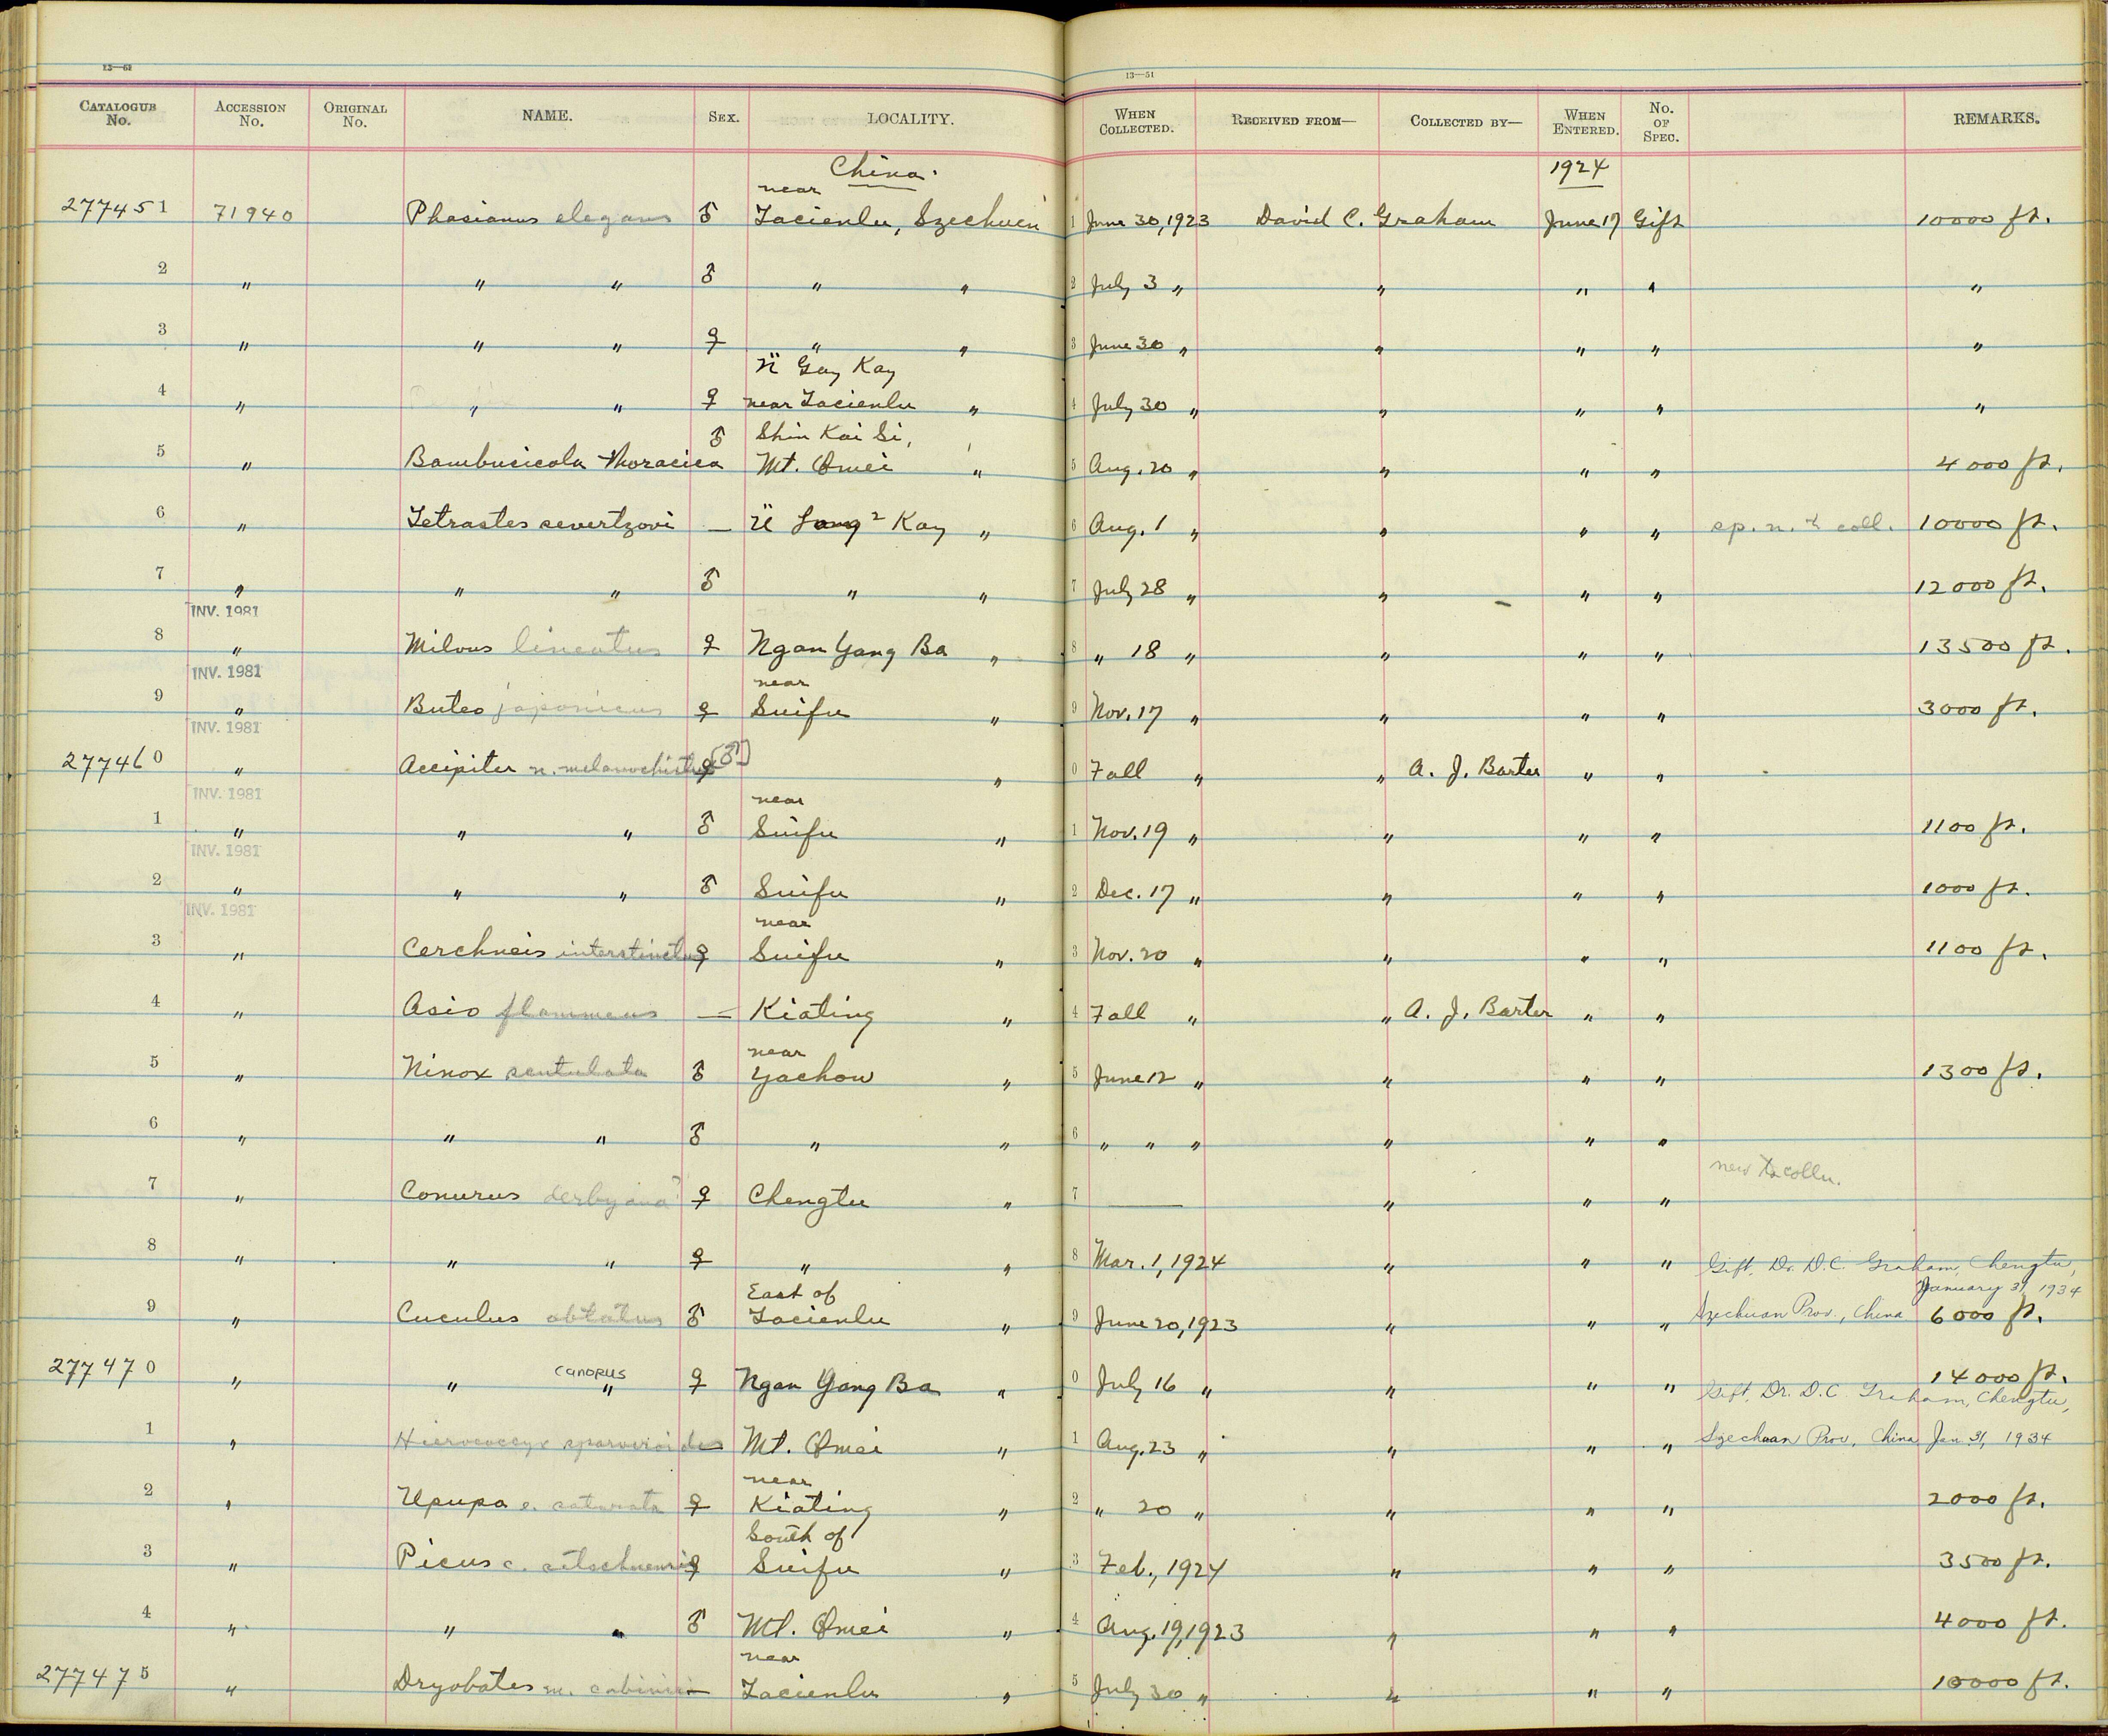 13—51 13—51
CATALOGUE No. ACCESSION No. ORIGINAL No. NAME. SEX. LOCALITY. WHEN COLLECTED. RECEIVED FROM— COLLECTED BY— WHEN ENTERED. No. OF SPEC. REMARKS.
China. 1924
near
277451 71940 Phasianus elegans ♂ Tacienlu, Szechuen 1 June 30, 1923 David C. Graham June 17 Gift 10000 ft.
2 " " " ♂ " " 2 July 3 " " " " "
3 " " " ♀ " " 3 June 30 " " " " "
Ü Gay Kay
4 " " " ♀ near Tacienlu " 4 July 30 " " " " "
Shin Kai Si,
5 " Bambusicola thoracica ♂ Mt. Omei " 5 Aug. 20 " " " " 4000 ft.
6 " Tetrastes severtzovi — Ü Long² Kay " 6 Aug. 1 " " " " sp. n. to coll. 10000 ft.
7 " " " ♂ " " 7 July 28 " " " " 12000 ft.
INV. 1981
8 " Milvus lineatus ♀ Ngan Yang Ba " 8 " 18 " " " " 13500 ft.
INV. 1981
near
9 " Buteo japonicus ♀ Suifu " 9 Nov. 17 " " " " 3000 ft.
INV. 1981
277460 " Accipiter n. melanochistus ♀ [♂] " 0 Fall " " A. J. Barter " "
INV. 1981
near
1 " " " ♂ Suifu " 1 Nov. 19 " " " " 1100 ft.
INV. 1981
2 " " " ♂ Suifu " 2 Dec. 17 " " " " 1000 ft.
INV. 1981
near
3 " Cerchneis interstinctus ♀ Suifu " 3 Nov. 20 " " " " 1100 ft.
4 " Asio flammeus — Kiating " 4 Fall " " A. J. Barter " "
near
5 " Ninox scutulata ♂ Yachow " 5 June 12 " " " " 1300 ft.
6 " " " ♂ " " 6 " " " " " "
new to colln.
7 " Conurus derbyana? ♀ Chengtu " 7 — " " "
8 " " " ♀ " " 8 Mar. 1, 1924 " " " Gift, Dr. D. C. Graham, Chengtu,
January 31, 1934
East of
9 " Cuculus obtatus ♂ Tacienlu " 9 June 20, 1923 " " " Szechuan Prov., China 6000 ft.
canorus
277470 " " " ♀ Ngan Yang Ba " 0 July 16 " " " " 14000 ft.
Gift, Dr. D. C. Graham, Chengtu,
1 " Hierococcyx sparverioides — Mt. Omei " 1 Aug. 23 " " " " Szechuan Prov., China Jan 31, 1934
near
2 " Upupa e. saturata ♀ Kiating " 2 " 20 " " " " 2000 ft.
South of
3 " Picus c. setschuensis ♀ Suifu " 3 Feb., 1924 " " " 3500 ft.
4 " " " ♂ Mt. Omei " 4 Aug. 19, 1923 " " " 4000 ft.
near
277475 " Dryobates m. cabinisi — Tacienlu " 5 July 30 " " " " 10000 ft.